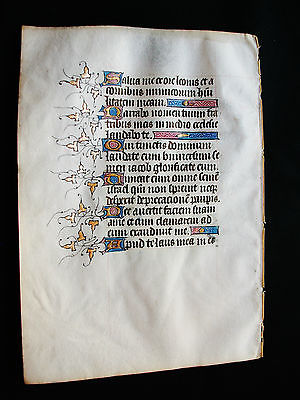 Salua me ex ore leonis et a
cornibus unicornium humi
litatem meam.
Narrabo nomen tuum fra
tribus meis in medio ecclesie
laudabo te.
Qui timetis dominum
laudate eum uniuersum se
men iacob glorificate eum
Timeat eum omne semẽ
israel qm̃ non spreuit neqꝫ
despexit deprecationẽ paup̃is
Nec auertit faciem suam
a me et cum clamarem ad
eum exaudiuit me.
Apud te laus mea in ec